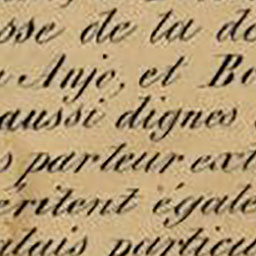 sse de la de
Anjo, et Bo
aussi dignes
s parleur ext
éritent égale
alais particu